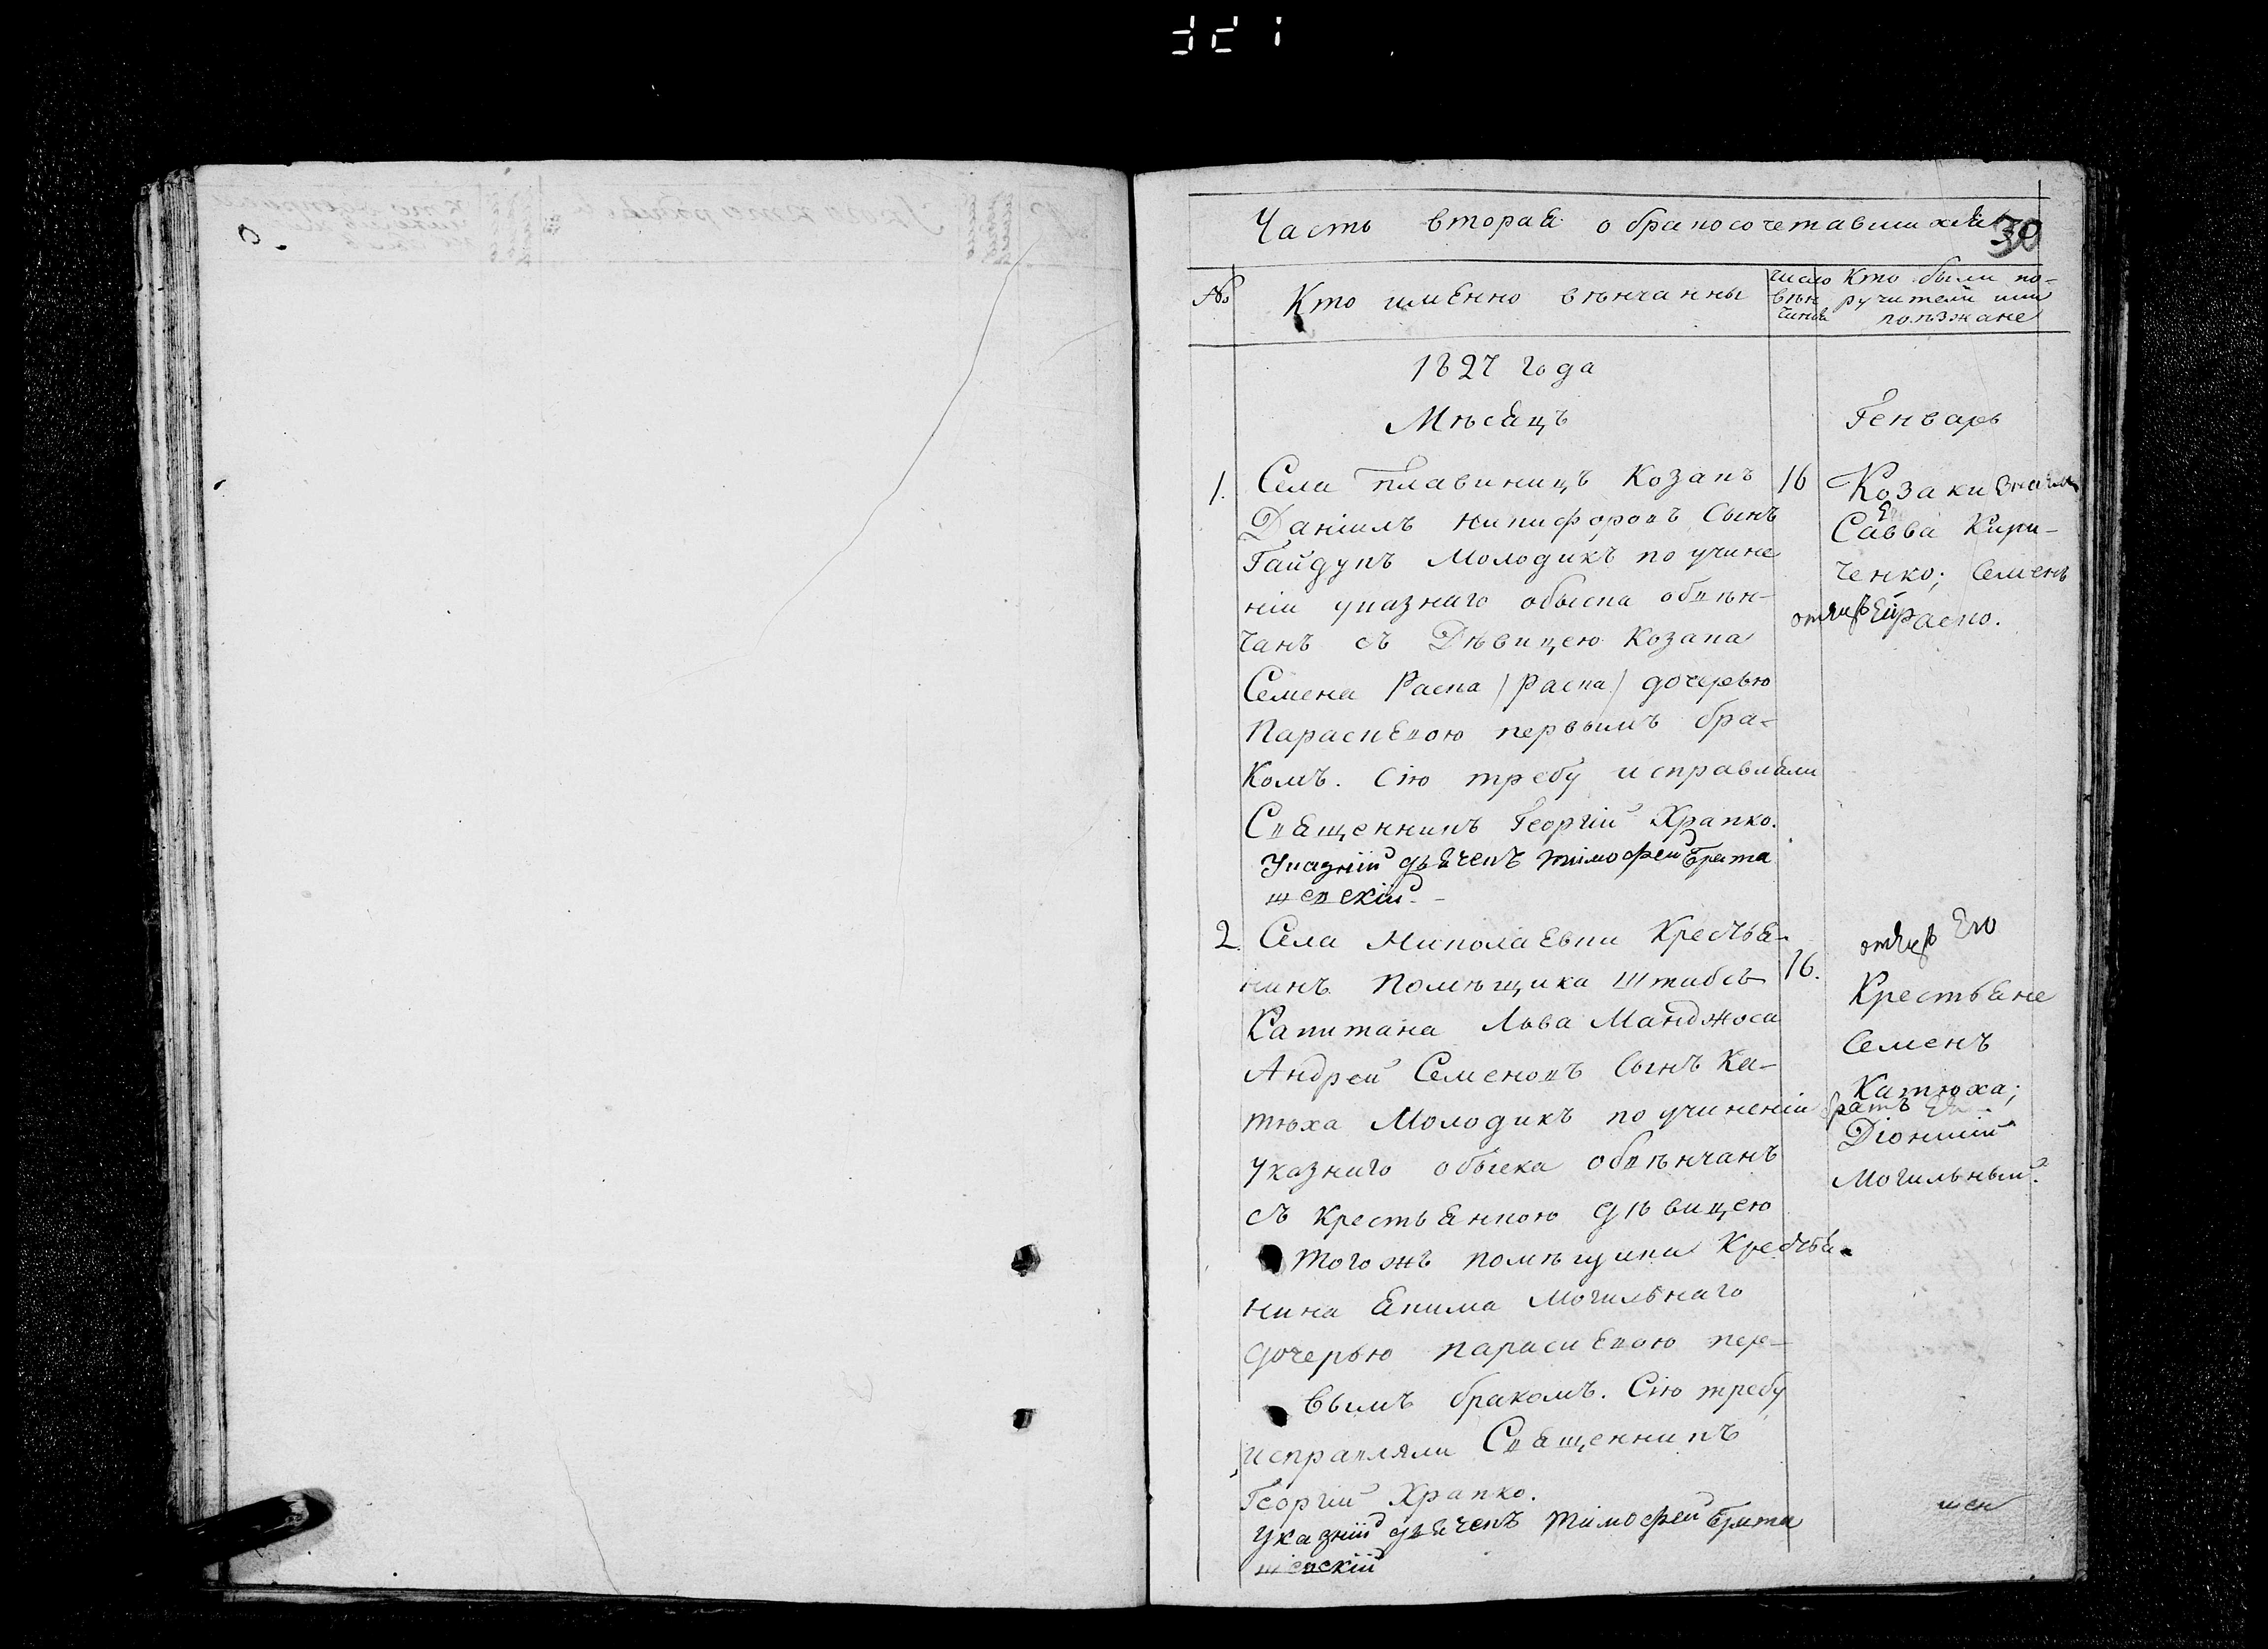 Часть вторая о бракосочетавшихся
30
№
Кто имянно вѣнчанны
число вѣнчания
Кто были по-
ручители или
поѣзжане
1827 года
Мѣсяцъ
Генварь
1.
Села Плавиницъ Козакъ
Даніилъ Никифоровъ Сынъ
Гайдукъ Молодикъ по учине
ніи указнаго обыска обвѣн-
чанъ съ Дѣвицею Козака
Семена Раска /Раска/ дочерью
Параскевою первымъ бра-
комъ. Сію требу исправляли
Священникъ Георгій Храпко.
Указній дьячекъ Тимофей Брата
шевскій. -
16
Козаки
Савва Кири-
ченко; Семенъ
отецъ ей Раско.
2.
Села Николаевки Крестья-
нинъ Помѣщика Штабсъ
Капитана Льва Манджоса
Андрей Семеновъ Сынъ Ка-
тюха Молодикъ по учиненіи
указнаго обыска обвѣнчанъ
съ крестьянкою дѣвицею
тогожъ помѣщика Крестья-
нина Якима Могильнаго
дочерью Параскевою пер-
вымъ бракомъ. Сію требу
исправляли Священникъ
Георгій Храпко.
Указній дьячекъ Тимофей Брата
шевскій
16.
отецъ Его
Крестьяне
Семенъ
Катюха;
братъ Ея
Діонисій
Могильный.